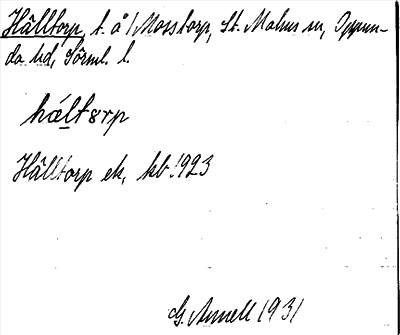 Hålltorp, t. å /Mosstorp, St. Malms sn, Oppun-
da hd, Sörml. l.
hǻltɵrp
Hålltorp ek. kb. 1923
G. Annell 1931